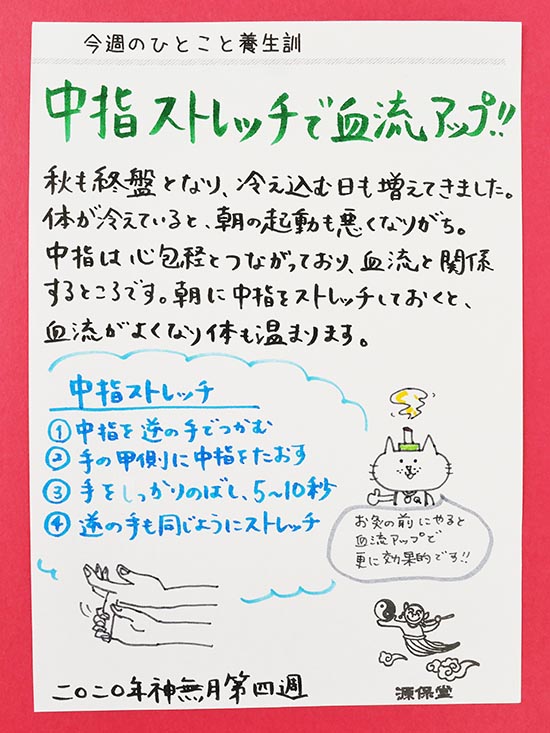 今週のひとこと養生訓
中指ストレッチで血流アップ!!
秋も終盤となり、冷え込む日も増えてきました。
体が冷えていると、朝の起動も悪くなりがち。
中指は心包経とつながっており、血流と関係
するところです。朝に中指をストレッチしておくと、
血流がよくなり体も温まります。
中指ストレッチ
① 中指を逆の手でつかむ
② 手の甲側に中指をたおす
③ 手をしっかりのばし、5〜10秒
④ 逆の手も同じようにストレッチ
お灸の前にやると
血流アップで
更に効果的です!!
二〇二〇年神無月第四週
源保堂